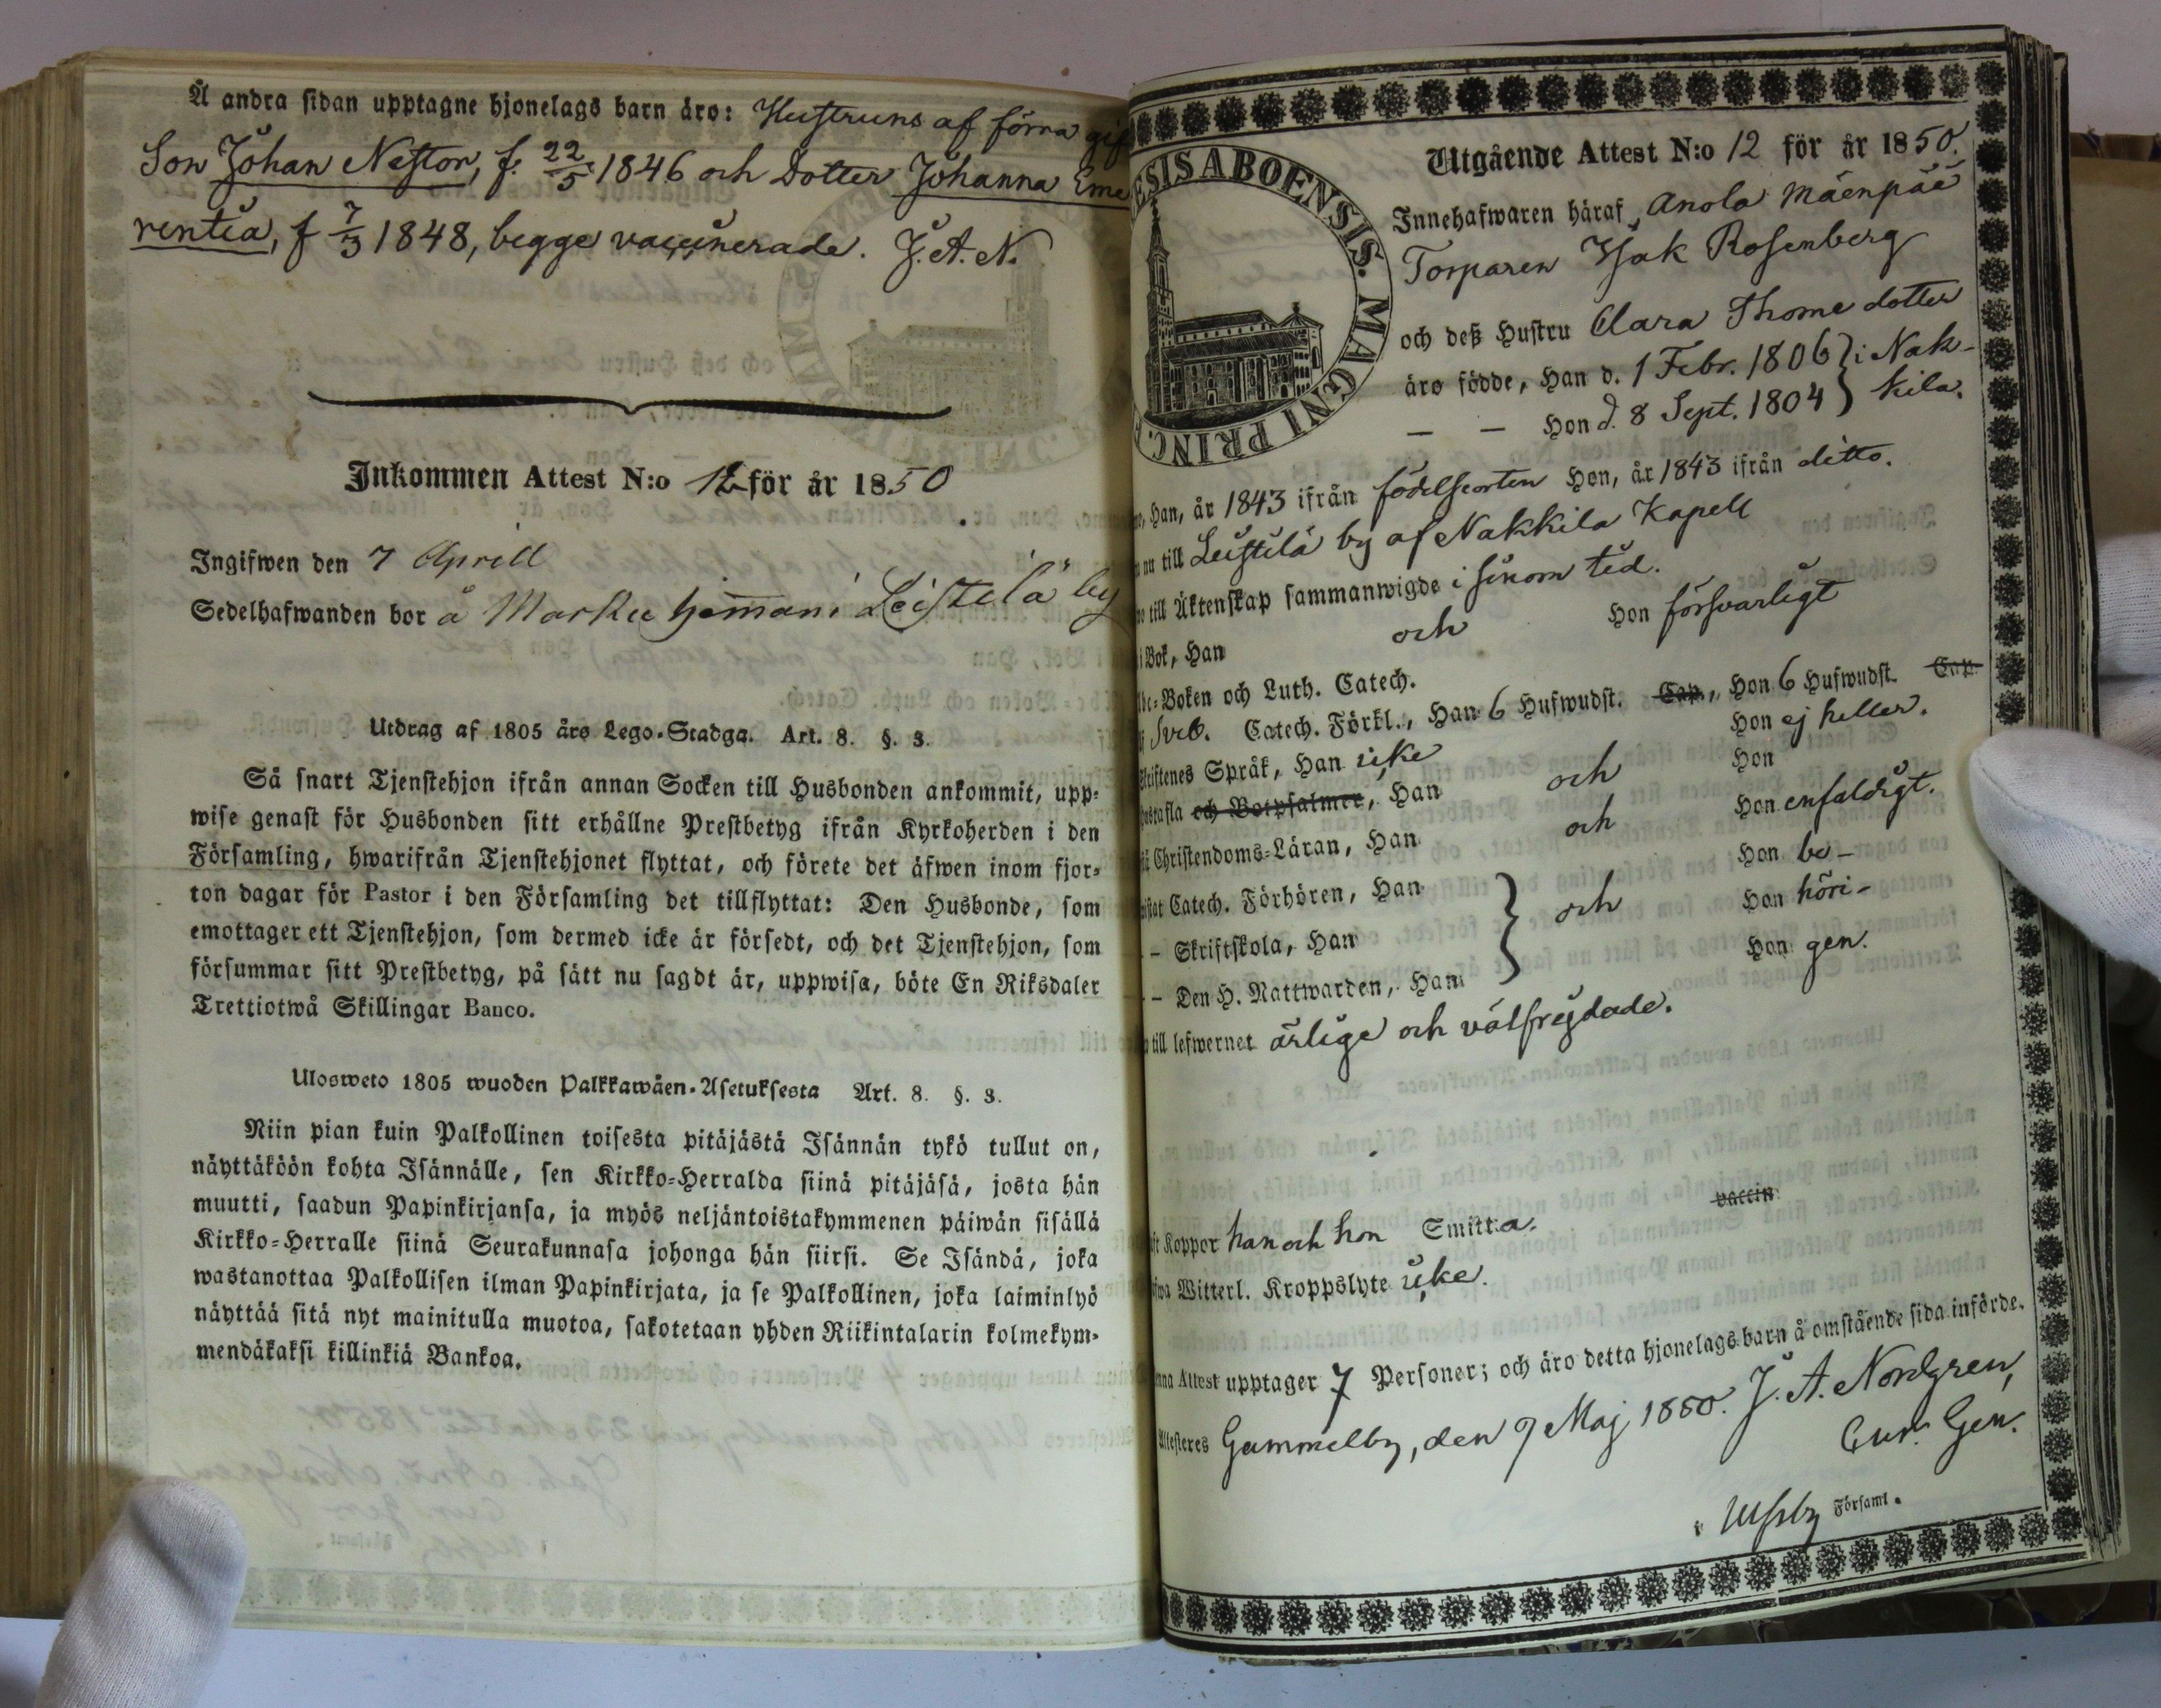 Å andra sidan upptagne hjonelags barn äro: Hustruns af förra gif
Son Johan Nestor, f. 22/5 1846 och Dotter Johanna Eme
rentia, f 7/3 1848, begge vaccinerade. J. A. N.
Inkommen Attest N:o 12 för år 1850
Ingifwen den 7 Aprill
Sedelhafwanden bor å Marku hemman i Leistilä by
Utdrag af 1805 års Lego-Stadga. Art. 8. §. 3.
Så snart Tjenstehjon ifrån annan Socken till Husbonden ankommit, upp-
wise genast för Husbonden sitt erhållne Prestbetyg ifrån Kyrkoherden i den
Församling, hwarifrån Tjenstehjonet flyttat, och förete det äfwen inom fjor-
ton dagar för Pastor i den Församling det tillflyttat: Den Husbonde, som
emottager ett Tjenstehjon, som dermed icke är försedt, och det Tjenstehjon, som
försummar sitt Prestbetyg, på sätt nu sagdt är, uppwisa, böte En Riksdaler
Trettiotwå Skillingar Banco.
Ulosweto 1805 wuoden Palkkawäen-Asetuksesta Art. 8. §. 3.
Niin pian kuin Palkollinen toisesta pitäjästä Isännän tykö tullut on,
näyttäköön kohta Isännälle, sen Kirkko-Herralda siinä pitäjäsä, josta hän
muutti, saadun Papinkirjansa, ja myös neljäntoistakymmenen päiwän sisällä
Kirkko-Herralle siinä Seurakunnasa johonga hän siirsi. Se Isändä, joka
wastanottaa Palkollisen ilman Papinkirjata, ja se Palkollinen, joka laiminlyö
näyttää sitä nyt mainitulla muotoa, sakotetaan yhden Riikintalarin kolmekym-
mendäkaksi killinkiä Bankoa.
ESIS ABOENSIS. MAGNI PRINC.
Utgående Attest N:o 12 för år 1850.
Innehafwaren häraf, Anola Mäenpää
Torparen Isak Rosenberg
och deß Hustru Clara Thome dotter
äro födde, Han d. 1 Febr. 1806 } i Nak-
— — Hon d. 8 Sept. 1804 } kila.
Han, år 1843 ifrån födelseorten Hon, år 1843 ifrån ditto.
nu till Leistilä by af Nakkila Kapell
till Äktenskap sammanwigde i sinom tid.
i Bok, Han och Hon försvarligt
Abc-Boken och Luth. Catech.
Sveb. Catech. Förkl., Han 6 Hufwudst. Cap., Hon 6 Hufwudst. Cap.
Skriftenes Språk, Han icke Hon ej heller.
Hustafla och Botpsalmer, Han och Hon
i Christendoms-Läran, Han och Hon enfaldigt.
Catech. Förhören, Han Hon be-
– – Skriftskola, Han } och Hon höri-
– – Den H. Nattwarden, Han Hon gen.
till lefwernet ärlige och välfrejdade.
Koppor han och hon Smitt:a. vaccin:
Witterl. Kroppslyte icke.
Attest upptager 7 Personer; och äro detta hjonelags barn å omstående sida införde.
Attesteres Gammelby, den 9 Maj 1850. J. A. Nordgren,
Cur. Gen.
i Ulfsby Församl.